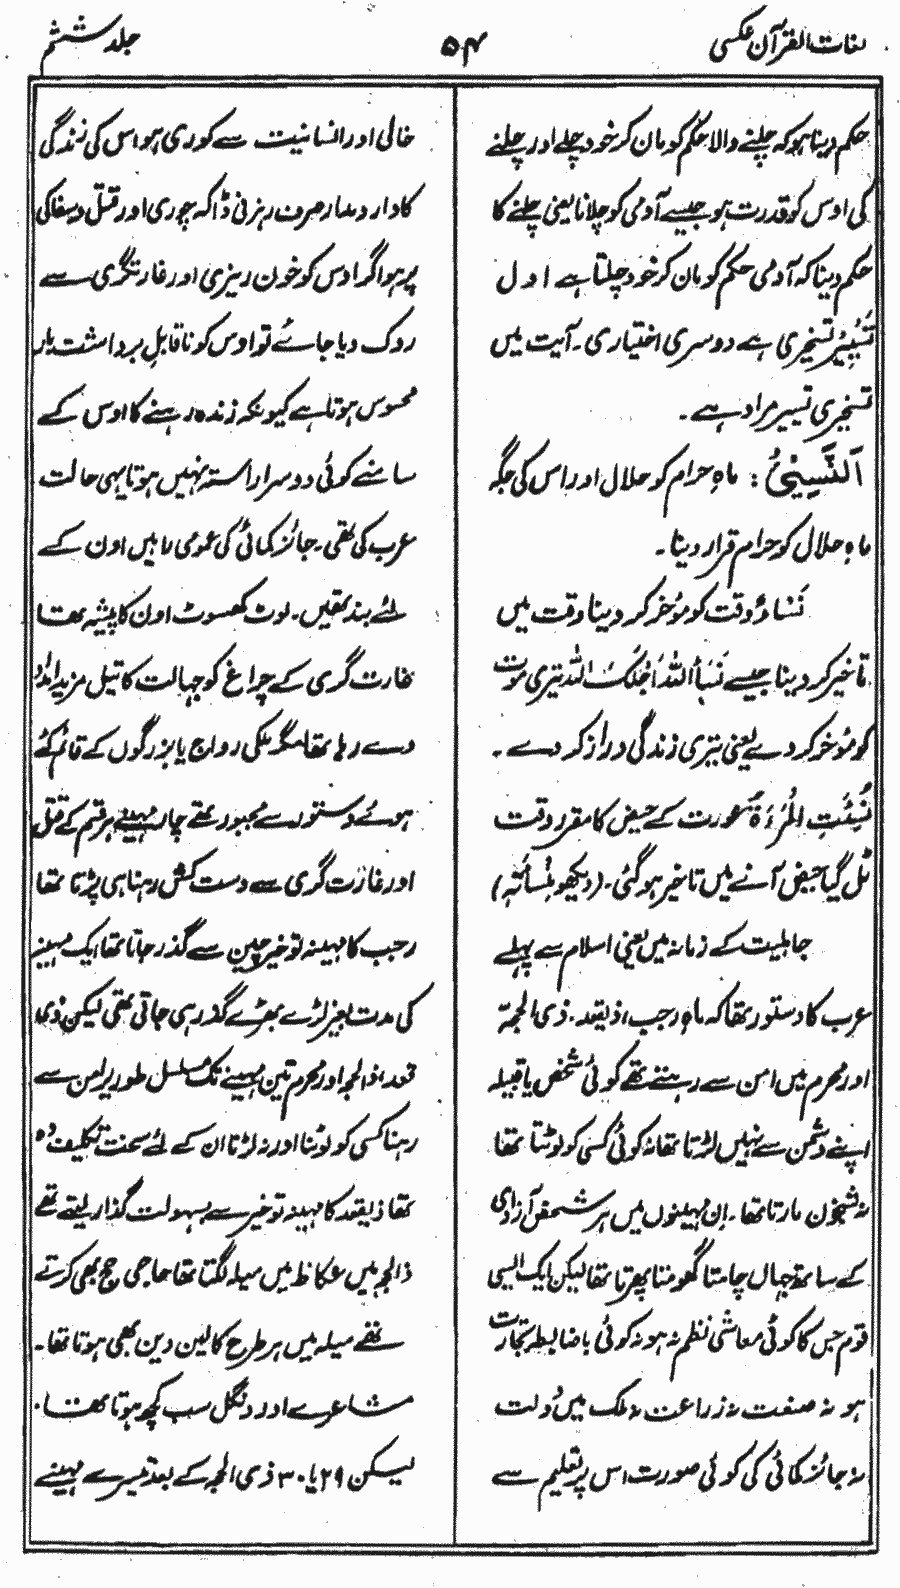 لغات القرآن عکسی
۵۴
جلد ششم
حکم دینا ہو کہ چلنے والا حکم کو مان کر خود چلے اور چلنے
کی اوس کو قدرت ہو جیسے آدمی کو چلانا یعنی چلنے کا
حکم دینا کہ آدمی حکم کو مان کر خود چلتا ہے اول
تَسْیِیْر تسخیری ہے دوسری اختیاری۔ آیت میں
تسخیری تسییر مراد ہے۔
اَلنَّسِیْءُ : ماہِ حرام کو حلال اور اس کی جگہ
ماہِ حلال کو حرام قرار دینا۔
نَسَاءٌ وقت کو مؤخر کر دینا وقت میں
تاخیر کر دینا جیسے نَسَأَ اللہُ اَجَلَکَ اللہ تیری موت
کو مؤخر کر دے یعنی تیری زندگی دراز کر دے۔
نُسِئَتِ الْمَرْءَةُ عورت کے حیض کا مقرر وقت
ٹل گیا حیض آنے میں تاخیر ہو گئی۔ (دیکھو مِنْسَأَتَہٗ)
جاہلیت کے زمانہ میں یعنی اسلام سے پہلے
عرب کا دستور تھا کہ ماہِ رجب، ذیقعد۔ ذی الحجہ
اور محرم میں امن سے رہتے تھے کوئی شخص یا قبیلہ
اپنے دشمن سے نہیں لڑتا تھا نہ کوئی کسی کو لوٹتا تھا
نہ شبخون مارتا تھا۔ اِن مہینوں میں ہر شخص آزادی
کے ساتھ جہاں چاہتا گھومتا پھرتا تھا لیکن ایک ایسی
قوم جس کا کوئی معاشی نظم نہ ہو نہ کوئی باضابطہ تجارت
ہو نہ صنعت نہ زراعت نہ ملک میں دولت
نہ جائز کمائی کی کوئی صورت اس پر تعلیم سے
خالی اور انسانیت سے کوری ہو اس کی زندگی
کا دار و مدار صرف رہزنی ڈاکہ چوری اور قتل و سفاکی
پر ہو اگر اوس کو خون ریزی اور غارتگری سے
روک دیا جائے تو اوس کو ناقابلِ برداشت بار
محسوس ہوتا ہے کیونکہ زندہ رہنے کا اوس کے
سامنے کوئی دوسرا راستہ نہیں ہوتا یہی حالت
عرب کی تھی۔ جائز کمائی کی عمومی راہیں اون کے
لئے بند تھیں۔ لوٹ کھسوٹ اون کا پیشہ تھا
غارت گری کے چراغ کو جہالت کا تیل مزید امداد
دے رہا تھا مگر ملکی رواج یا بزرگوں کے قائم کئے
ہوئے دستور سے مجبور تھے چار مہینے ہر قسم کے قتل
اور غارت گری سے دست کش رہنا ہی پڑتا تھا
رجب کا مہینہ تو خیر چین سے گذر جاتا تھا ایک مہینہ
کی مدت بغیر لڑے بھڑے گذر ہی جاتی تھی لیکن ذی
قعد، ذالحجہ اور محرم تین مہینے تک مسلسل طور پر امن سے
رہنا کسی کو لوٹنا اور نہ لڑنا ان کے لئے سخت تکلیف دہ
تھا ذیقعد کا مہینہ تو خیر سے بسہولت گذار لیتے تھے
ذالحجہ میں عکاظ میں میلہ لگتا تھا حاجی حج بھی کرتے
تھے میلہ میں ہر طرح کا لین دین بھی ہوتا تھا۔
مشاعرے اور دنگل سب کچھ ہوتا تھا۔
لیکن ۲۹ یا ۳۰ ذی الحجہ کے بعد تیسرے مہینے